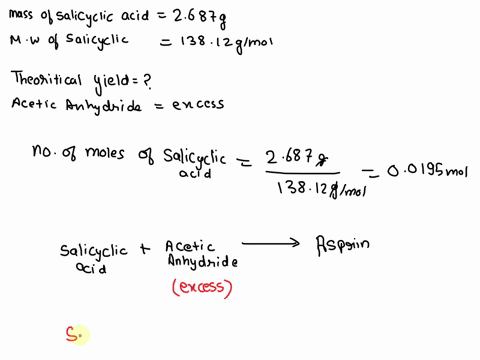 mass of salicyclic acid = 2.687g
M.W of Salicyclic = 138.12g/mol
Theoritical yield = ?
Acetic Anhydride = excess
no. of moles of Salicyclic acid = 2.687g / 138.12g/mol = 0.0195 mol
Salicyclic acid + Acetic Anhydride ⟶ Asprin
(excess)
S.